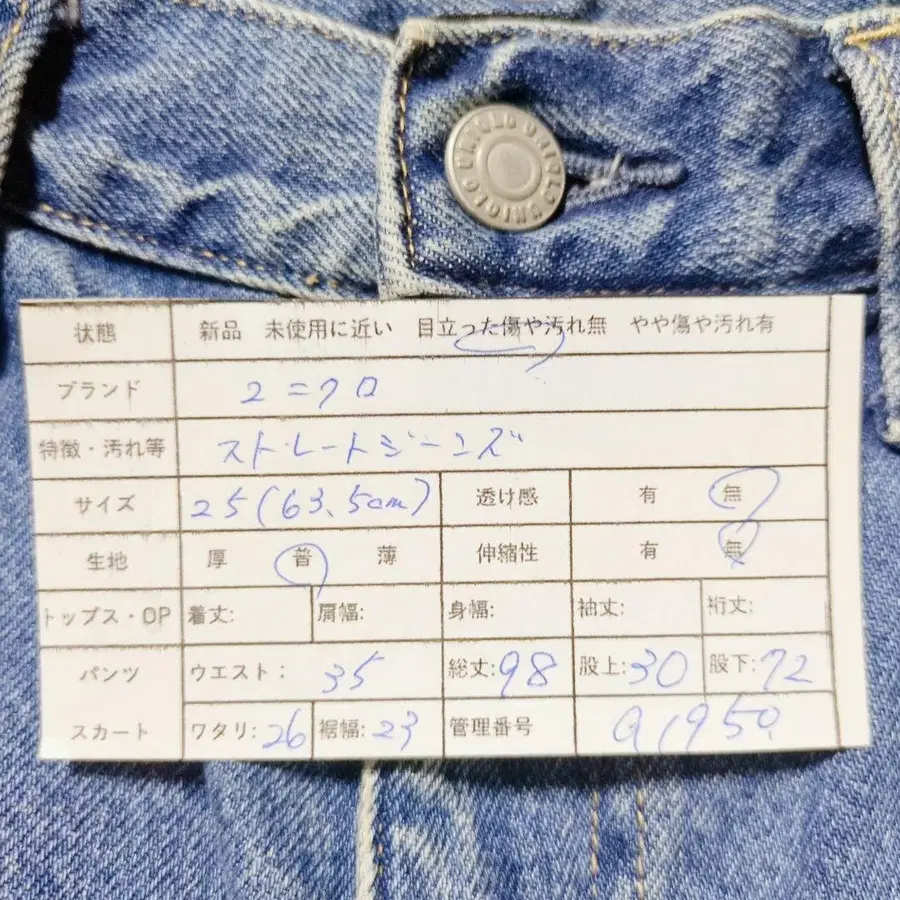 UNIQLO UNIQLO UNIQLO
状態 新品 未使用に近い 目立った傷や汚れ無 やや傷や汚れ有
ブランド ユニクロ
特徴・汚れ等 ストレートジーンズ
サイズ 25(63.5cm) 透け感 有 無
生地 厚 普 薄 伸縮性 有 無
トップス・OP 着丈: 肩幅: 身幅: 袖丈: 裄丈:
パンツ ウエスト: 35 総丈:98 股上:30 股下:72
スカート ワタリ:26 裾幅:23 管理番号 91950